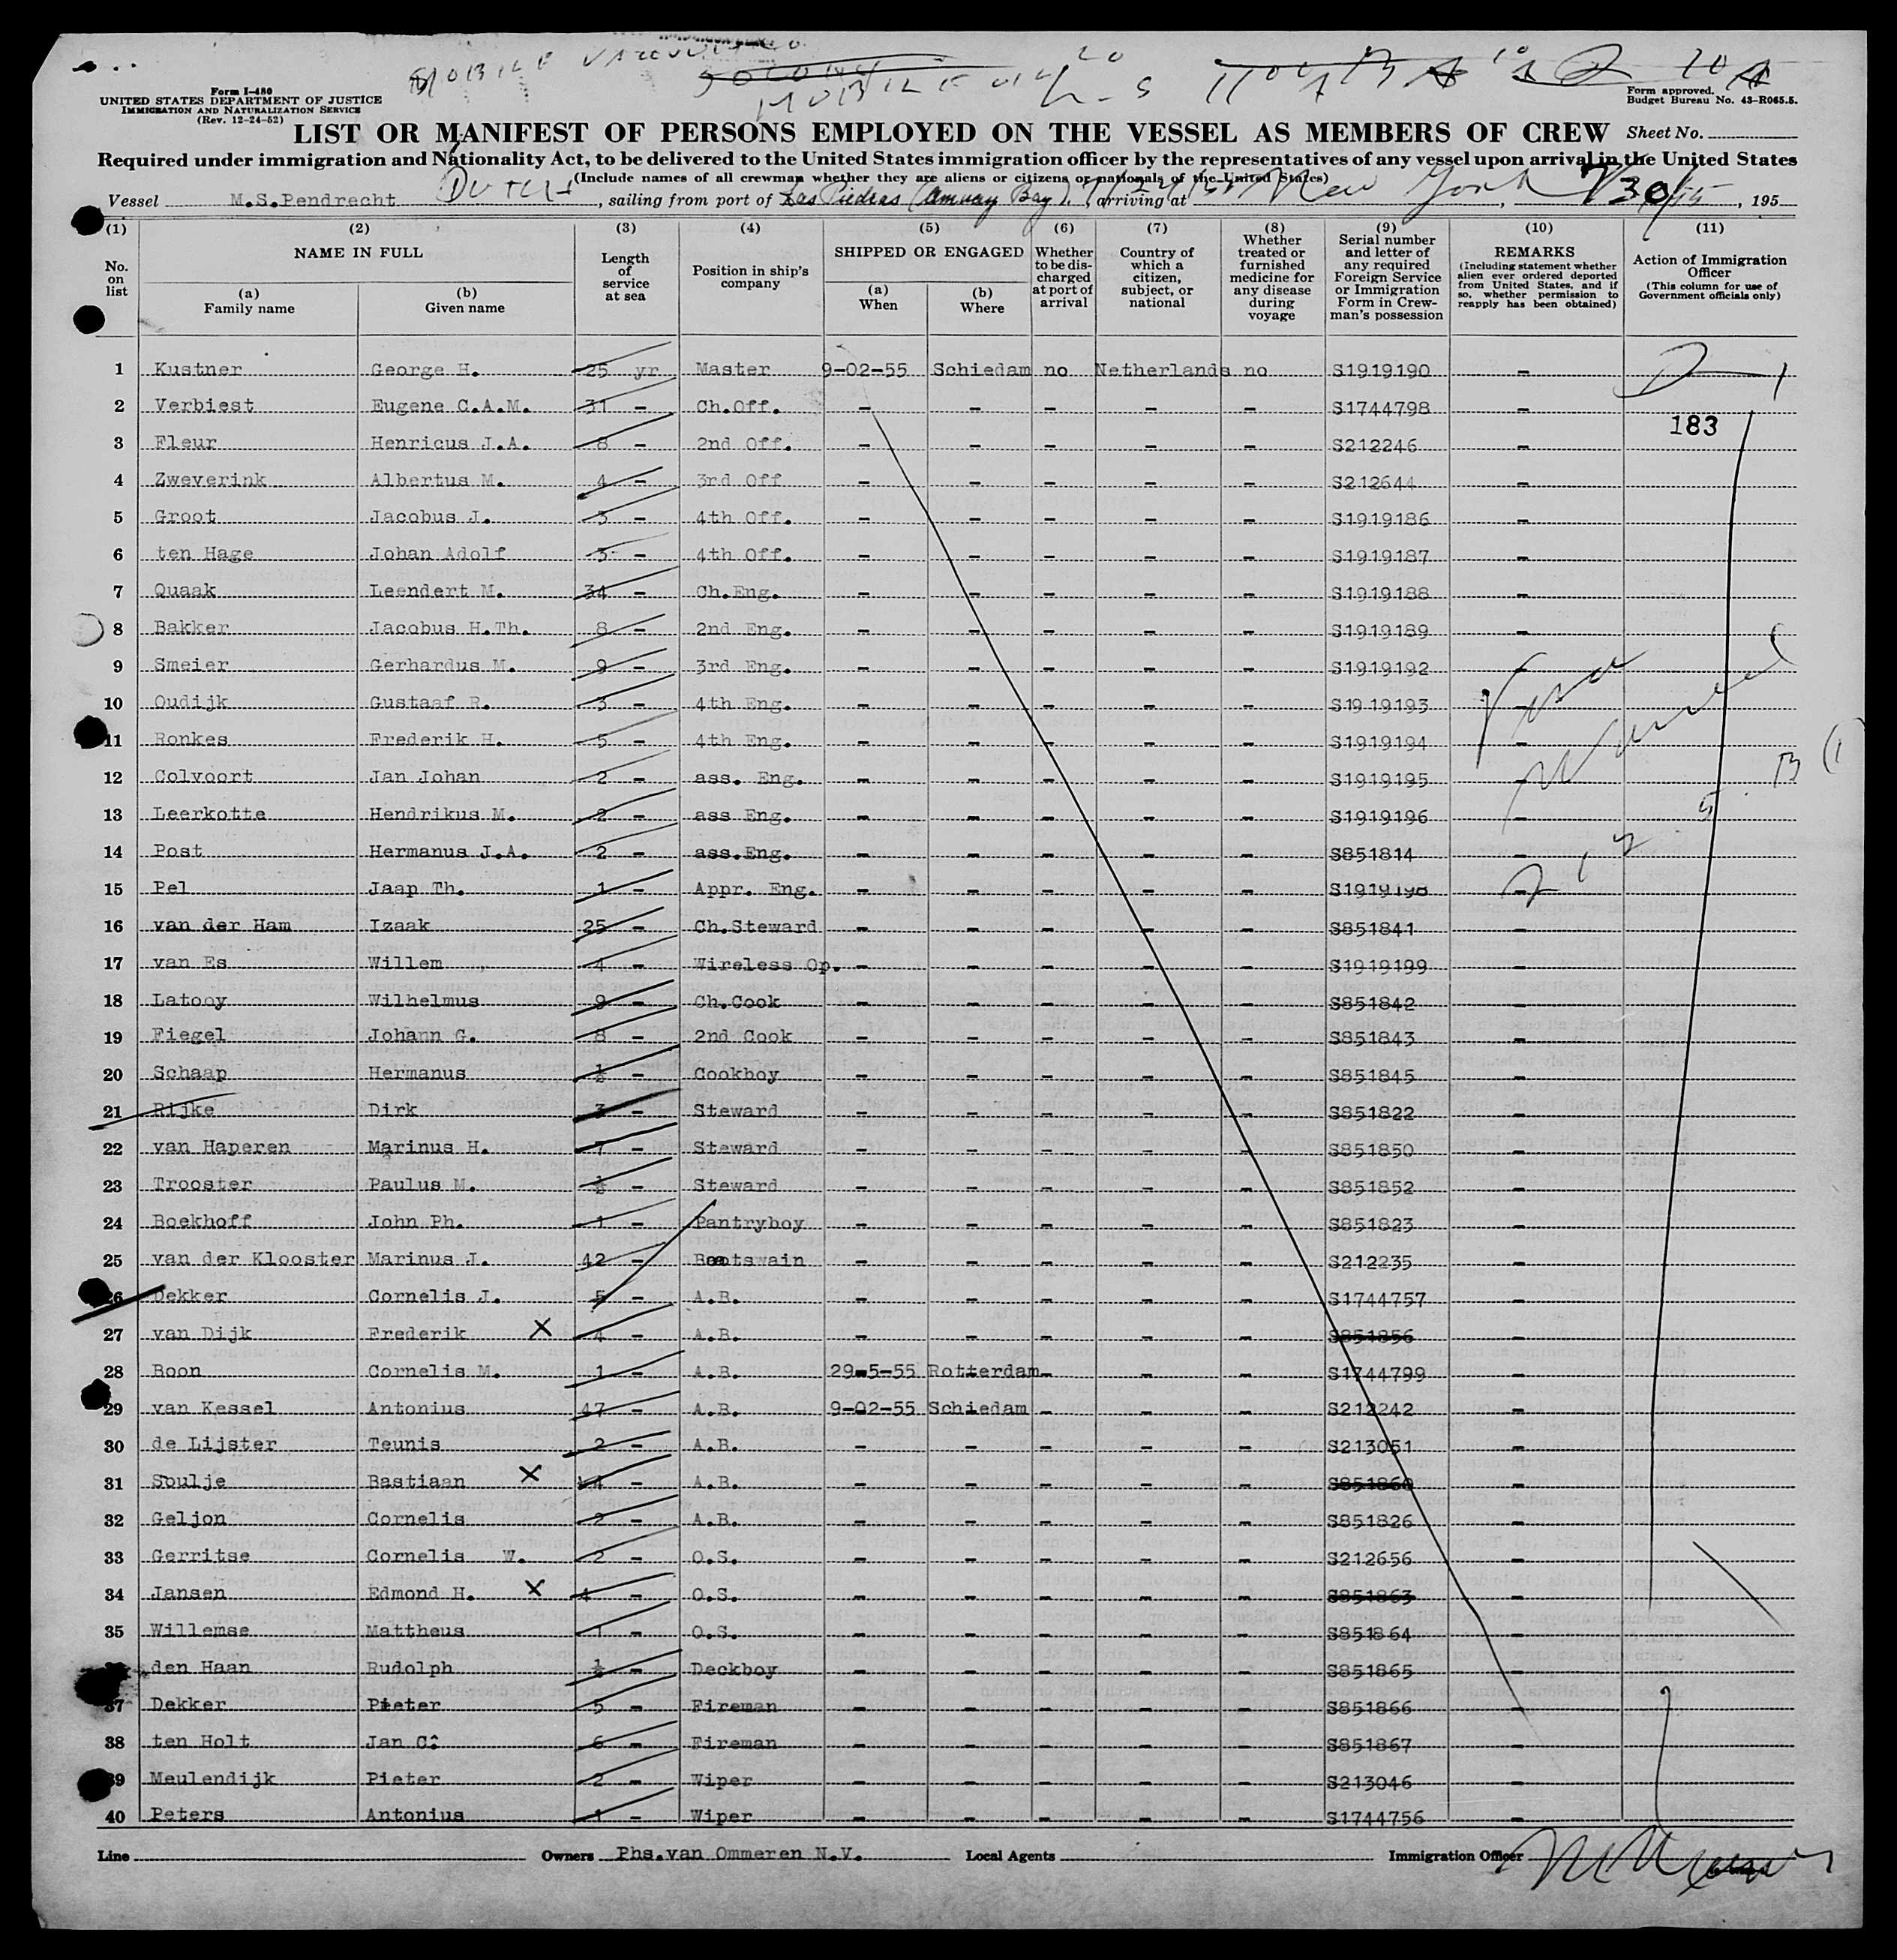 Form I-480
UNITED STATES DEPARTMENT OF JUSTICE
IMMIGRATION AND NATURALIZATION SERVICE
(Rev. 12-24-52)
Form approved.
Budget Bureau No. 43-R065.5.
LIST OR MANIFEST OF PERSONS EMPLOYED ON THE VESSEL AS MEMBERS OF CREW Sheet No.
Required under immigration and Nationality Act, to be delivered to the United States immigration officer by the representatives of any vessel upon arrival in the United States
(Include names of all crewman whether they are aliens or citizens or nationals of the United States)
Vessel M.S.Pendrecht Dutch, sailing from port of Las Piedras (Amuay Bay), arriving at New York, 7/30/55, 195
(1) (2) (3) (4) (5) (6) (7) (8) (9) (10) (11)
No. on list
NAME IN FULL
(a) Family name
(b) Given name
Length of service at sea
Position in ship's company
SHIPPED OR ENGAGED
(a) When
(b) Where
Whether to be discharged at port of arrival
Country of which a citizen, subject, or national
Whether treated or furnished medicine for any disease during voyage
Serial number and letter of any required Foreign Service or Immigration Form in Crewman's possession
REMARKS
(Including statement whether alien ever ordered deported from United States, and if so, whether permission to reapply has been obtained)
Action of Immigration Officer
(This column for use of Government officials only)
1 Kustner George H. 25 yr Master 9-02-55 Schiedam no Netherlands no S1919190 -
2 Verbiest Eugene C.A.M. 31 - Ch.Off. - - - - - S1744798 -
183
3 Fleur Henricus J.A. 8 - 2nd Off. - - - - - S212246 -
4 Zweverink Albertus M. 4 - 3rd Off - - - - - S212644 -
5 Groot Jacobus J. 3 - 4th Off. - - - - - S1919186 -
6 ten Hage Johan Adolf 3 - 4th Off. - - - - - S1919187 -
7 Quaak Leendert M. 34 - Ch.Eng. - - - - - S1919188 -
8 Bakker Jacobus H.Th. 8 - 2nd Eng. - - - - - S1919189 -
9 Smeier Gerhardus M. 9 - 3rd Eng. - - - - - S1919192 -
10 Oudijk Gustaaf R. 3 - 4th Eng. - - - - - S1919193 -
11 Ronkes Frederik H. 5 - 4th Eng. - - - - - S1919194 -
12 Colvoort Jan Johan 2 - ass. Eng. - - - - - S1919195 -
13 Leerkotte Hendrikus M. 2 - ass Eng. - - - - - S1919196 -
14 Post Hermanus J.A. 2 - ass.Eng. - - - - - S851814 -
15 Pel Jaap Th. 1 - Appr. Eng. - - - - - S1919198 -
16 van der Ham Izaak 25 - Ch.Steward - - - - - S851841 -
17 van Es Willem 4 - Wireless Op. - - - - - S1919199 -
18 Latooy Wilhelmus 9 - Ch.Cook - - - - - S851842 -
19 Fiegel Johann G. 8 - 2nd Cook - - - - - S851843 -
20 Schaap Hermanus ½ - Cookboy - - - - - S851845 -
21 Rijke Dirk 3 - Steward - - - - - S851822 -
22 van Haperen Marinus H. 7 - Steward - - - - - S851850 -
23 Trooster Paulus M. ½ - Steward - - - - - S851852 -
24 Boekhoff John Ph. 1 - Pantryboy - - - - - S851823 -
25 van der Klooster Marinus J. 42 - Bootswain - - - - - S212235 -
26 Dekker Cornelis J. 5 - A.B. - - - - - S1744757 -
27 van Dijk Frederik X 4 - A.B. - - - - - S851856 -
28 Boon Cornelis M. 1 - A.B. 29-5-55 Rotterdam - - - S1744799 -
29 van Kessel Antonius 47 - A.B. 9-02-55 Schiedam - - - S212242 -
30 de Lijster Teunis 2 - A.B. - - - - - S213051 -
31 Soulje Bastiaan X 14 - A.B. - - - - - S851860 -
32 Geljon Cornelis 2 - A.B. - - - - - S851826 -
33 Gerritse Cornelis W. 2 - O.S. - - - - - S212656 -
34 Jansen Edmond H. X 4 - O.S. - - - - - S851863 -
35 Willemse Mattheus 1 - O.S. - - - - - S851864 -
den Haan Rudolph ½ - Deckboy - - - - - S851865 -
37 Dekker Pieter 5 - Fireman - - - - - S851866 -
38 ten Holt Jan C. 6 - Fireman - - - - - S851867 -
39 Meulendijk Pieter 2 - Wiper - - - - - S213046 -
40 Peters Antonius 1 - Wiper - - - - - S1744756 -
Line Owners Phs.van Ommeren N.V. Local Agents Immigration Officer